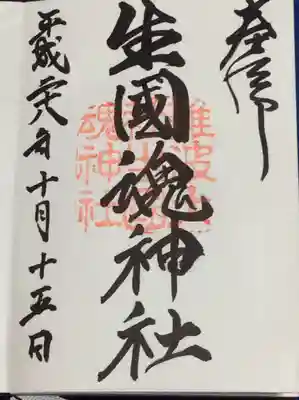 奉拝
生國魂神社
難波大社生國魂神社
平成二十八年十月十五日